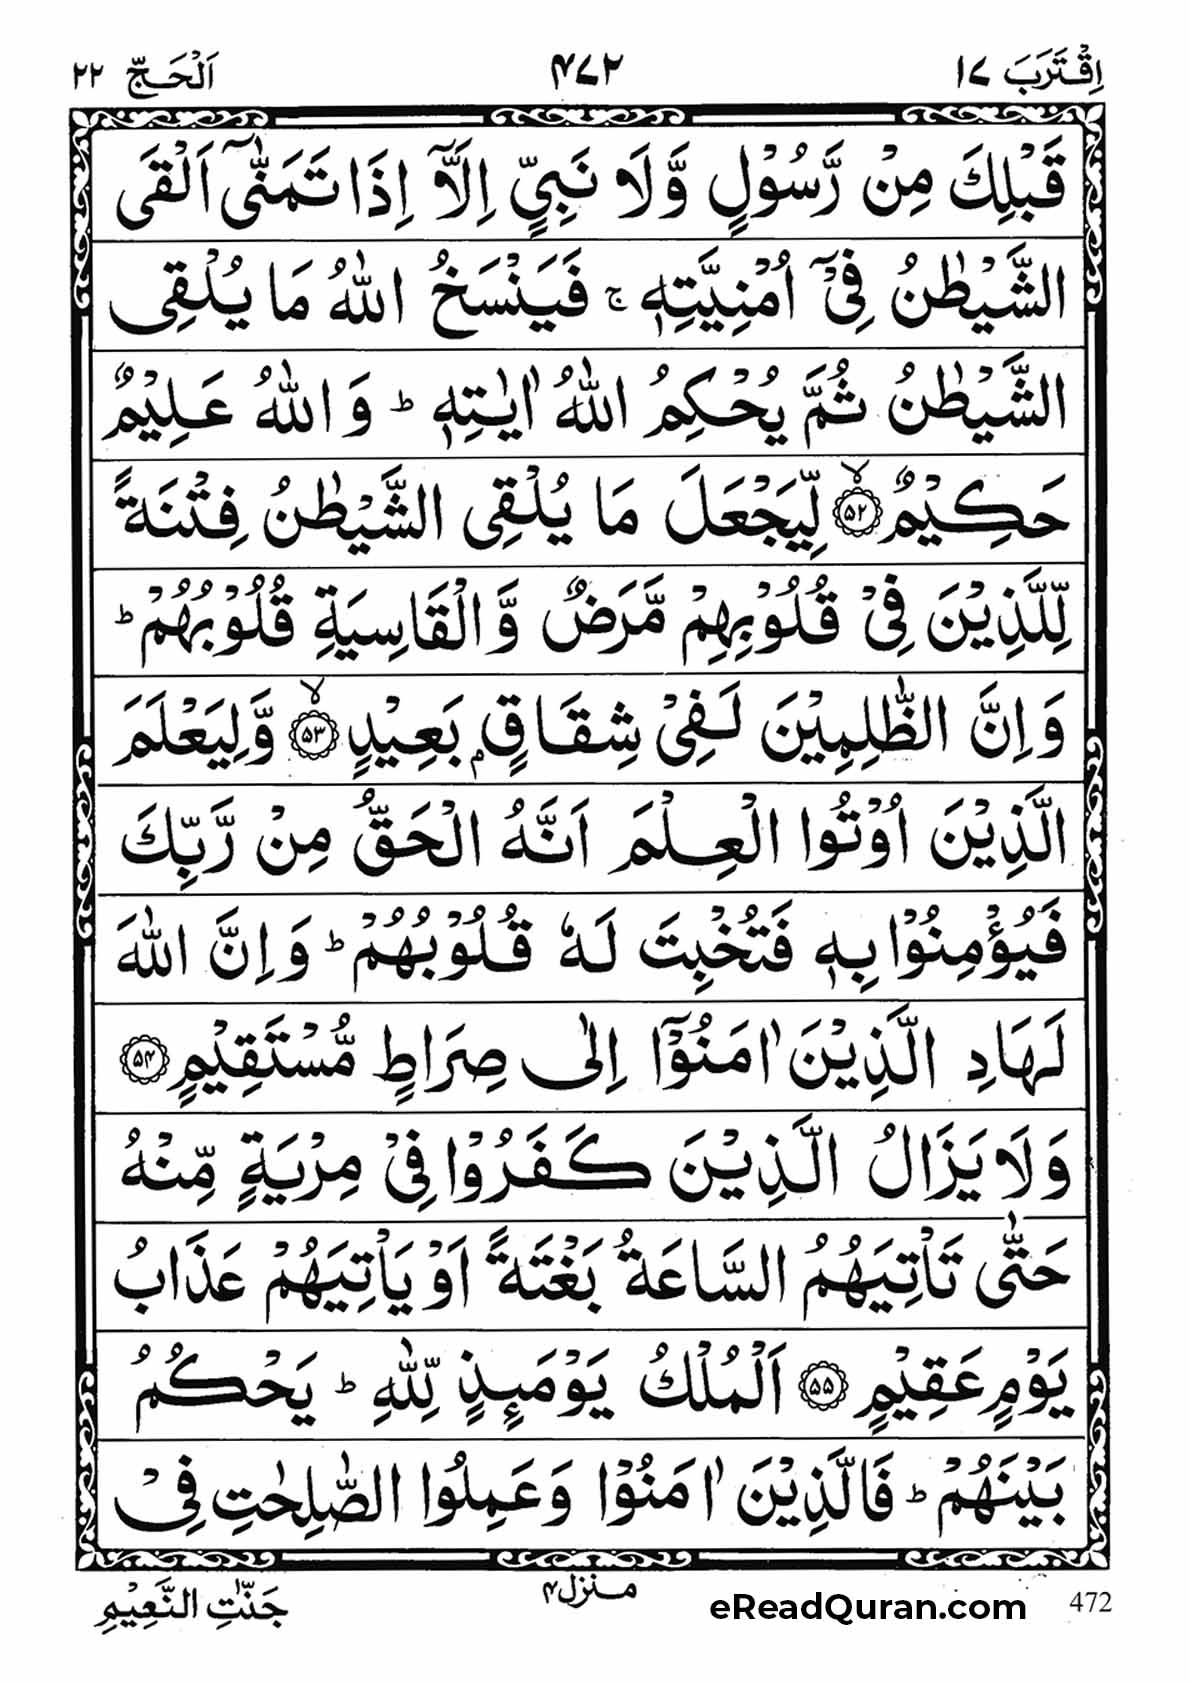 اِقْتَرَبَ ۱۷ ۴۷۲ اَلْحَجّ ۲۲
قَبْلِكَ مِنْ رَّسُوْلٍ وَّلَا نَبِيٍّ اِلَّاۤ اِذَا تَمَنّٰۤى اَلْقَى
الشَّيْطٰنُ فِيْۤ اُمْنِيَّتِهٖ ۚ فَيَنْسَخُ اللّٰهُ مَا يُلْقِى
الشَّيْطٰنُ ثُمَّ يُحْكِمُ اللّٰهُ اٰيٰتِهٖ ؕ وَ اللّٰهُ عَلِيْمٌ
حَكِيْمٌ ﴿۵۲﴾ۙ لِّيَجْعَلَ مَا يُلْقِى الشَّيْطٰنُ فِتْنَةً
لِّلَّذِيْنَ فِيْ قُلُوْبِهِمْ مَّرَضٌ وَّ الْقَاسِيَةِ قُلُوْبُهُمْ ؕ
وَ اِنَّ الظّٰلِمِيْنَ لَفِيْ شِقَاقٍۭ بَعِيْدٍ ﴿۵۳﴾ۙ وَّلِيَعْلَمَ
الَّذِيْنَ اُوْتُوا الْعِلْمَ اَنَّهُ الْحَقُّ مِنْ رَّبِّكَ
فَيُؤْمِنُوْا بِهٖ فَتُخْبِتَ لَهٗ قُلُوْبُهُمْ ؕ وَ اِنَّ اللّٰهَ
لَهَادِ الَّذِيْنَ اٰمَنُوْۤا اِلٰى صِرَاطٍ مُّسْتَقِيْمٍ ﴿۵۴﴾
وَلَا يَزَالُ الَّذِيْنَ كَفَرُوْا فِيْ مِرْيَةٍ مِّنْهُ
حَتّٰى تَاْتِيَهُمُ السَّاعَةُ بَغْتَةً اَوْ يَاْتِيَهُمْ عَذَابُ
يَوْمٍ عَقِيْمٍ ﴿۵۵﴾ اَلْمُلْكُ يَوْمَىِٕذٍ لِّلّٰهِ ؕ يَحْكُمُ
بَيْنَهُمْ ؕ فَالَّذِيْنَ اٰمَنُوْا وَعَمِلُوا الصّٰلِحٰتِ فِيْ
جَنّٰتِ النَّعِيْمِ
منزل ۴
eReadQuran.com
472